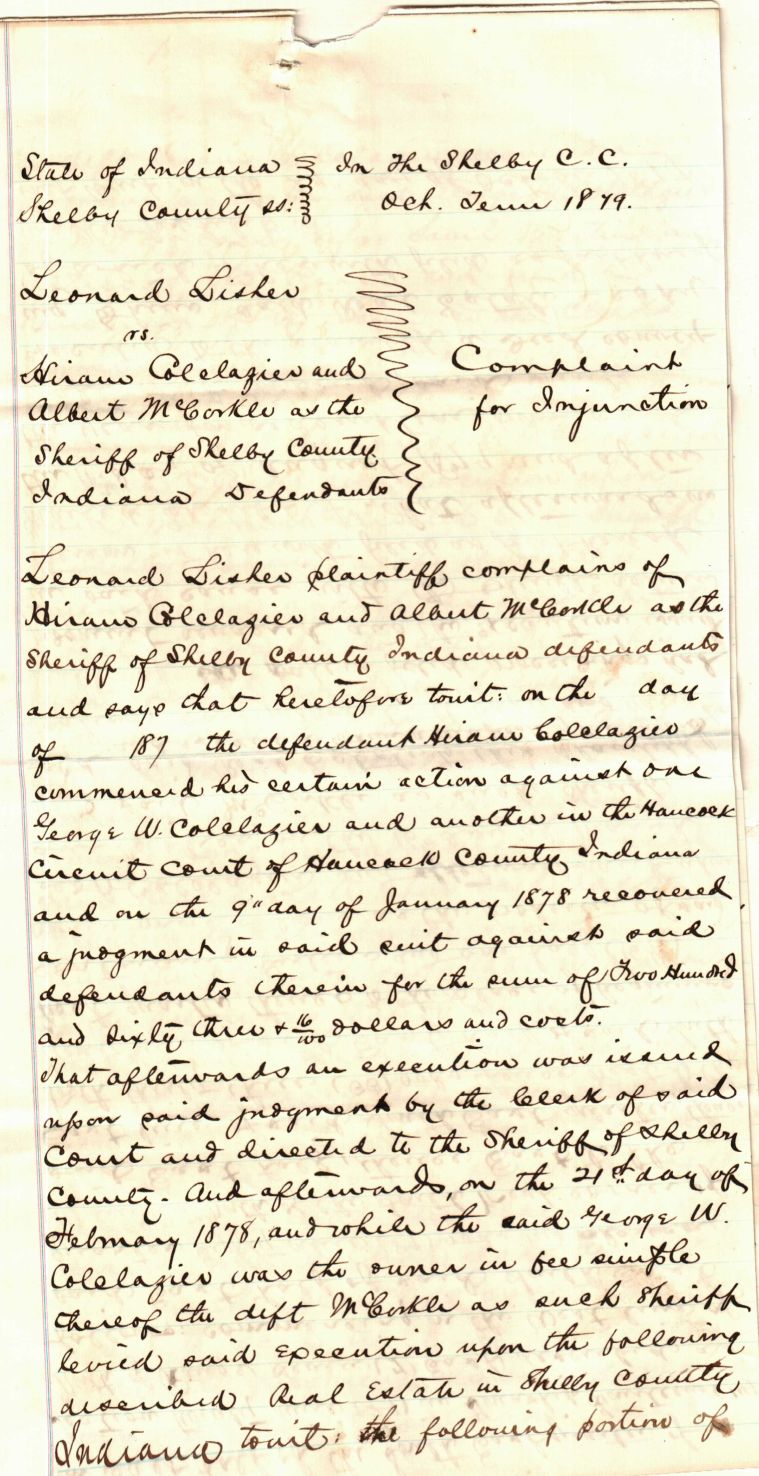 State of Indiana } In The Shelby C. C.
Shelby County ss: } Oct. Term 1879.
Leonard Lisher
vs.
Hiram Colclazier and
Albert McCorkle as the
Sheriff of Shelby County
Indiana Defendants
Complaint
for Injunction
Leonard Lisher plaintiff complains of
Hiram Colclazier and Albert McCorkle as the
Sheriff of Shelby County Indiana defendants
and says that heretofore towit: on the day
of 187 the defendant Hiram Colclazier
commenced his certain action against one
George W. Colclazier and another in the Hancock
Circuit Court of Hancock County Indiana
and on the 9" day of January 1878 recovered
a judgment in said suit against said
defendants therein for the sum of Two Hundred
and Sixty three & 16/100 dollars and costs.
That afterwards an execution was issued
upon said judgment by the Clerk of said
Court and directed to the Sheriff of Shelby
County. And afterwards, on the 21st day of
February 1878, and while the said George W.
Colclazier was the owner in fee simple
thereof the deft McCorkle as such Sheriff
levied said execution upon the following
described Real Estate in Shelby County
Indiana towit: the following portion of